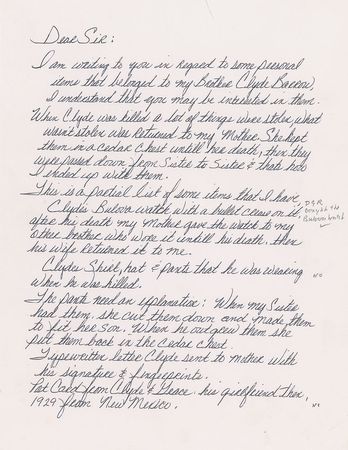 Dear Sir:
I am writing to you in regard to some personal
items that belonged to my Brother Clyde Barrow,
I understand that you may be interested in them.
When Clyde was killed a lot of things were stolen, what
wasn't stolen was returned to my Mother. She kept
them in a Cedar Chest untill her death, then they
were passed down from Sister to Sister & thats how
I ended up with them.
This is a partial list of some items that I have,
Clydes Bulova watch with a bullet crease on it
after his death my Mother gave the watch to my
other brother who wore it untill his death, then
his wife returned it to me.
Clydes Shirt, hat & pants that he was wearing
when he was killed.
The pants need an explanation: When my Sister
had them, she cut them down and made them
to fit her son. When he outgrew them she
put them back in the cedar chest.
Typewritten letter Clyde sent to Mother with
his signature & fingerprints.
Post Card from Clyde & Grace his girlfriend then,
1929 from New Mexico.
the
Bulova watch
NO